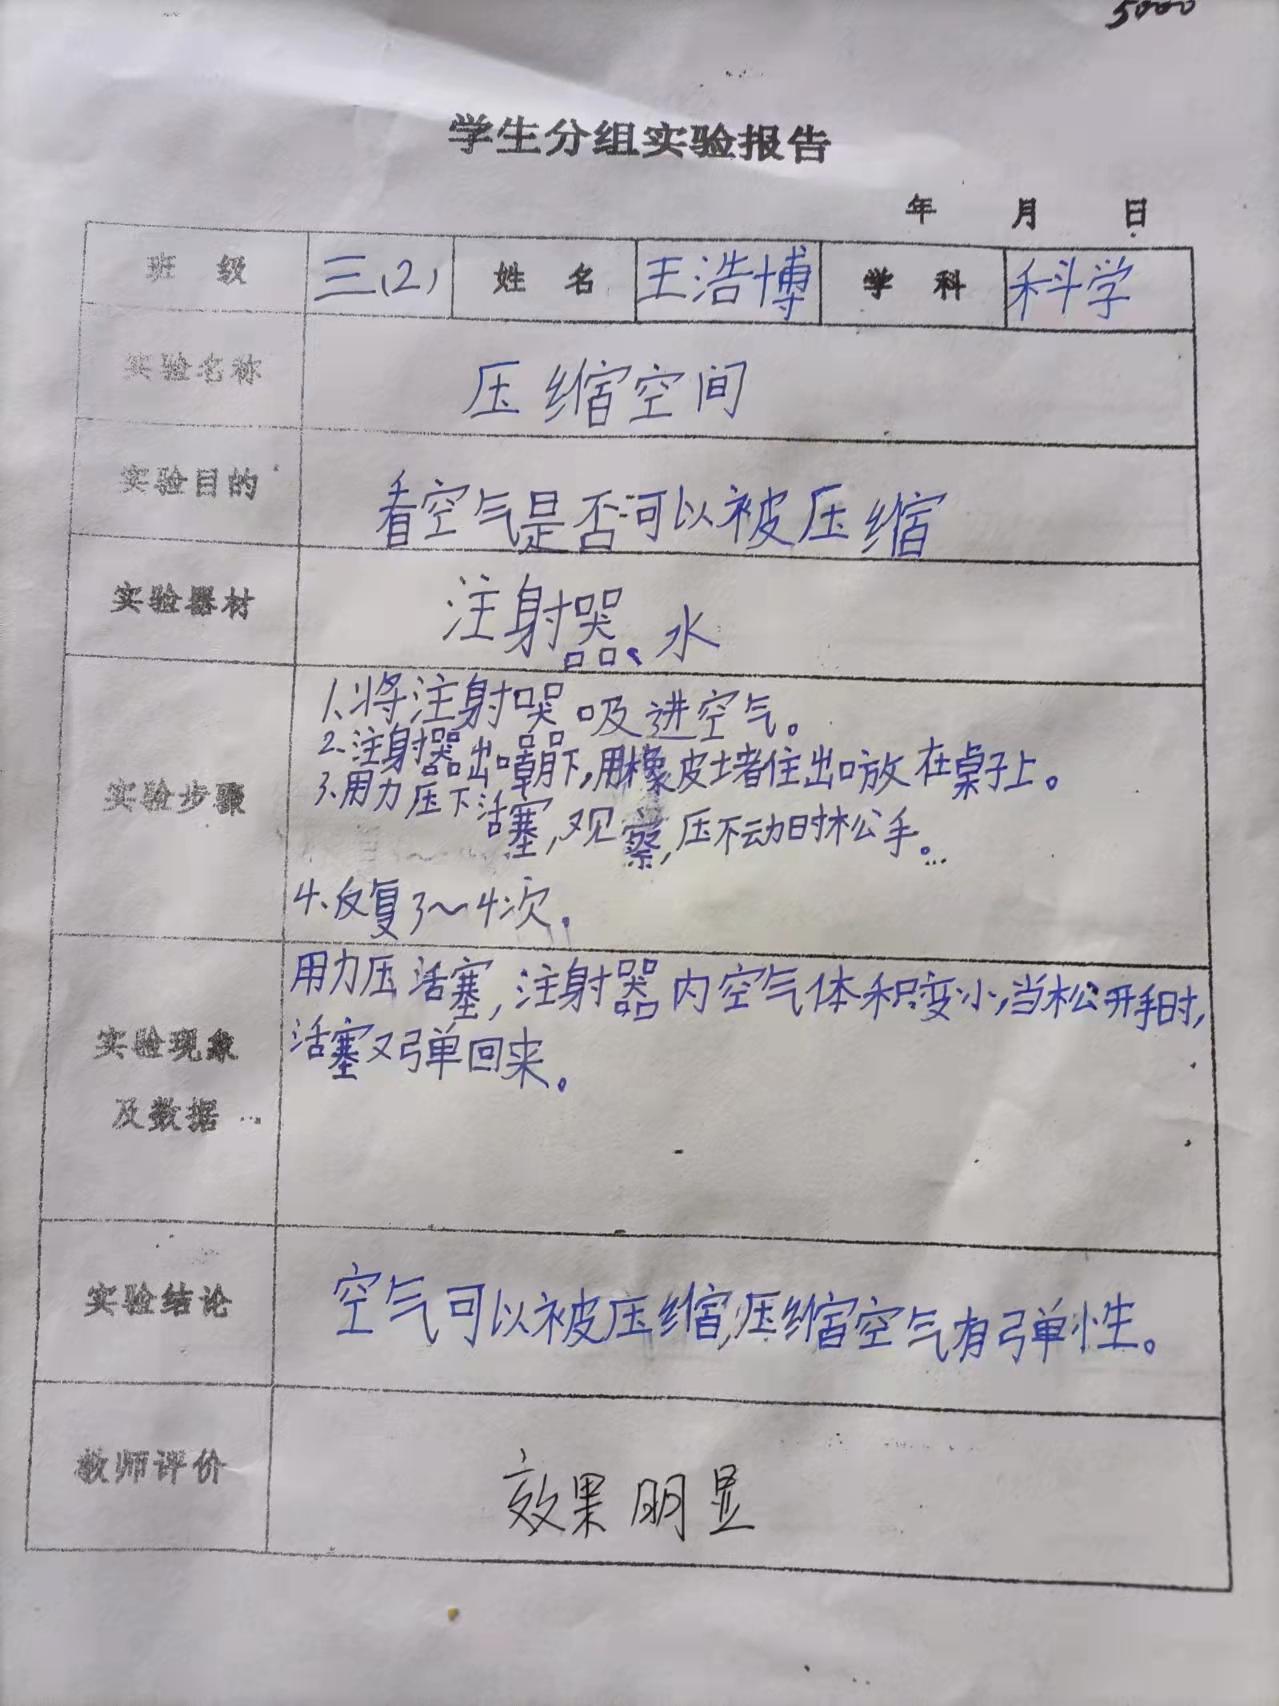 5000
学生分组实验报告
年 月 日
班 级 三(2) 姓 名 王浩博 学 科 科学
实验名称 压缩空间
实验目的 看空气是否可以被压缩
实验器材 注射器、水
实验步骤
1、将注射器吸进空气。
2、注射器出嘴朝下,用橡皮堵住出口放在桌子上。
3、用力压下活塞,观察,压不动时松手。
4、反复3~4次。
实验现象
及数据
用力压活塞,注射器内空气体积变小,当松开手时,
活塞又弹回来。
实验结论 空气可以被压缩,压缩空气有弹性。
教师评价 效果明显